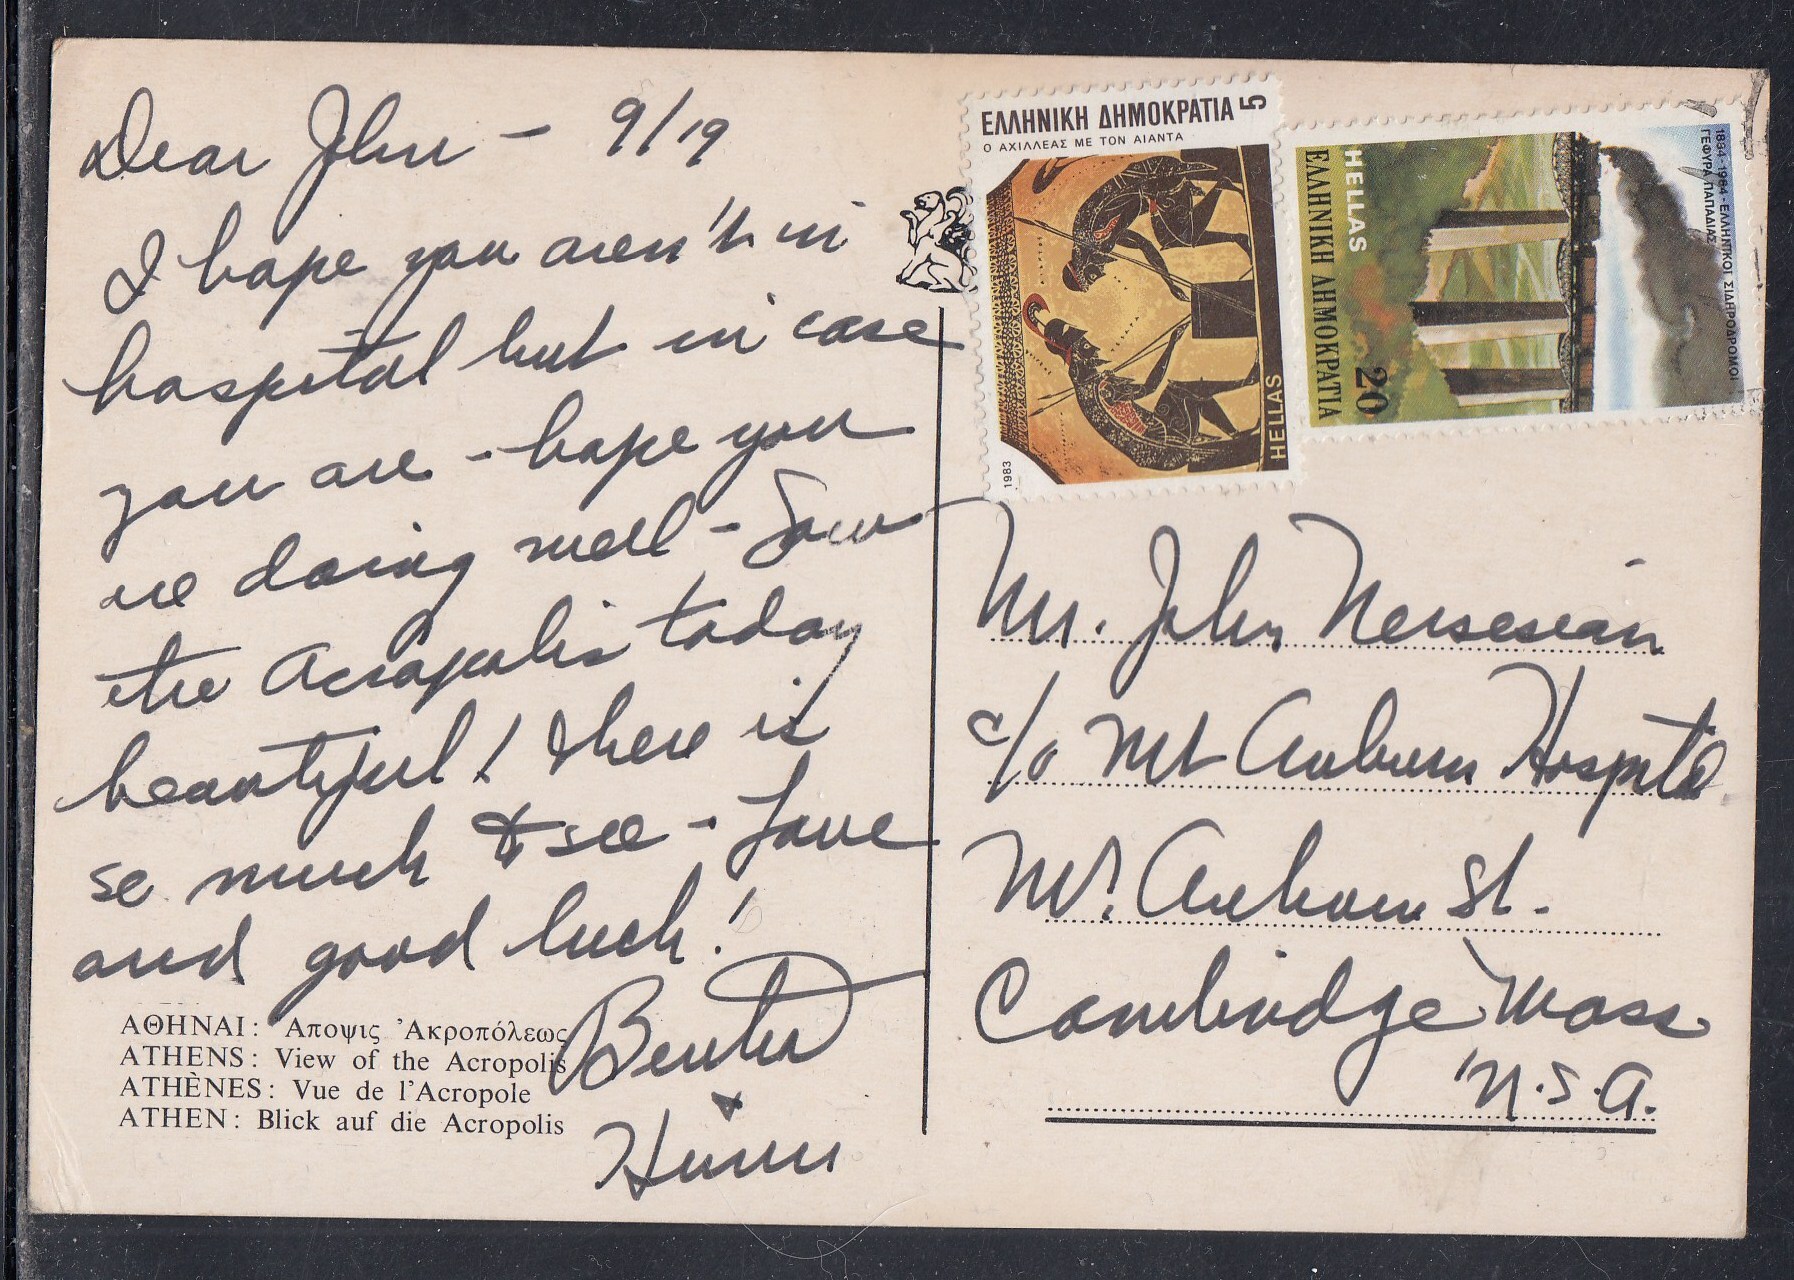 Dear John - 9/19
I hope you aren't in
hospital but in case
you are - hope you
are doing well - Saw
the Acropolis today
beautiful! There is
so much to see - Love
and good luck!
ΑΘΗΝΑΙ: Ἄποψις Ἀκροπόλεως
ATHENS: View of the Acropolis
ATHÈNES: Vue de l'Acropole
ATHEN: Blick auf die Acropolis
ΕΛΛΗΝΙΚΗ ΔΗΜΟΚΡΑΤΙΑ 5
Ο ΑΧΙΛΛΕΑΣ ΜΕ ΤΟΝ ΑΙΑΝΤΑ
HELLAS
1983
1884-1984 - ΕΛΛΗΝΙΚΟΙ ΣΙΔΗΡΟΔΡΟΜΟΙ
ΓΕΦΥΡΑ ΠΑΠΑΔΙΑΣ
HELLAS
ΕΛΛΗΝΙΚΗ ΔΗΜΟΚΡΑΤΙΑ
20
Mr. John Nersesian
c/o Mt Auburn Hospital
Mt. Auburn St.
Cambridge Mass
U.S.A.